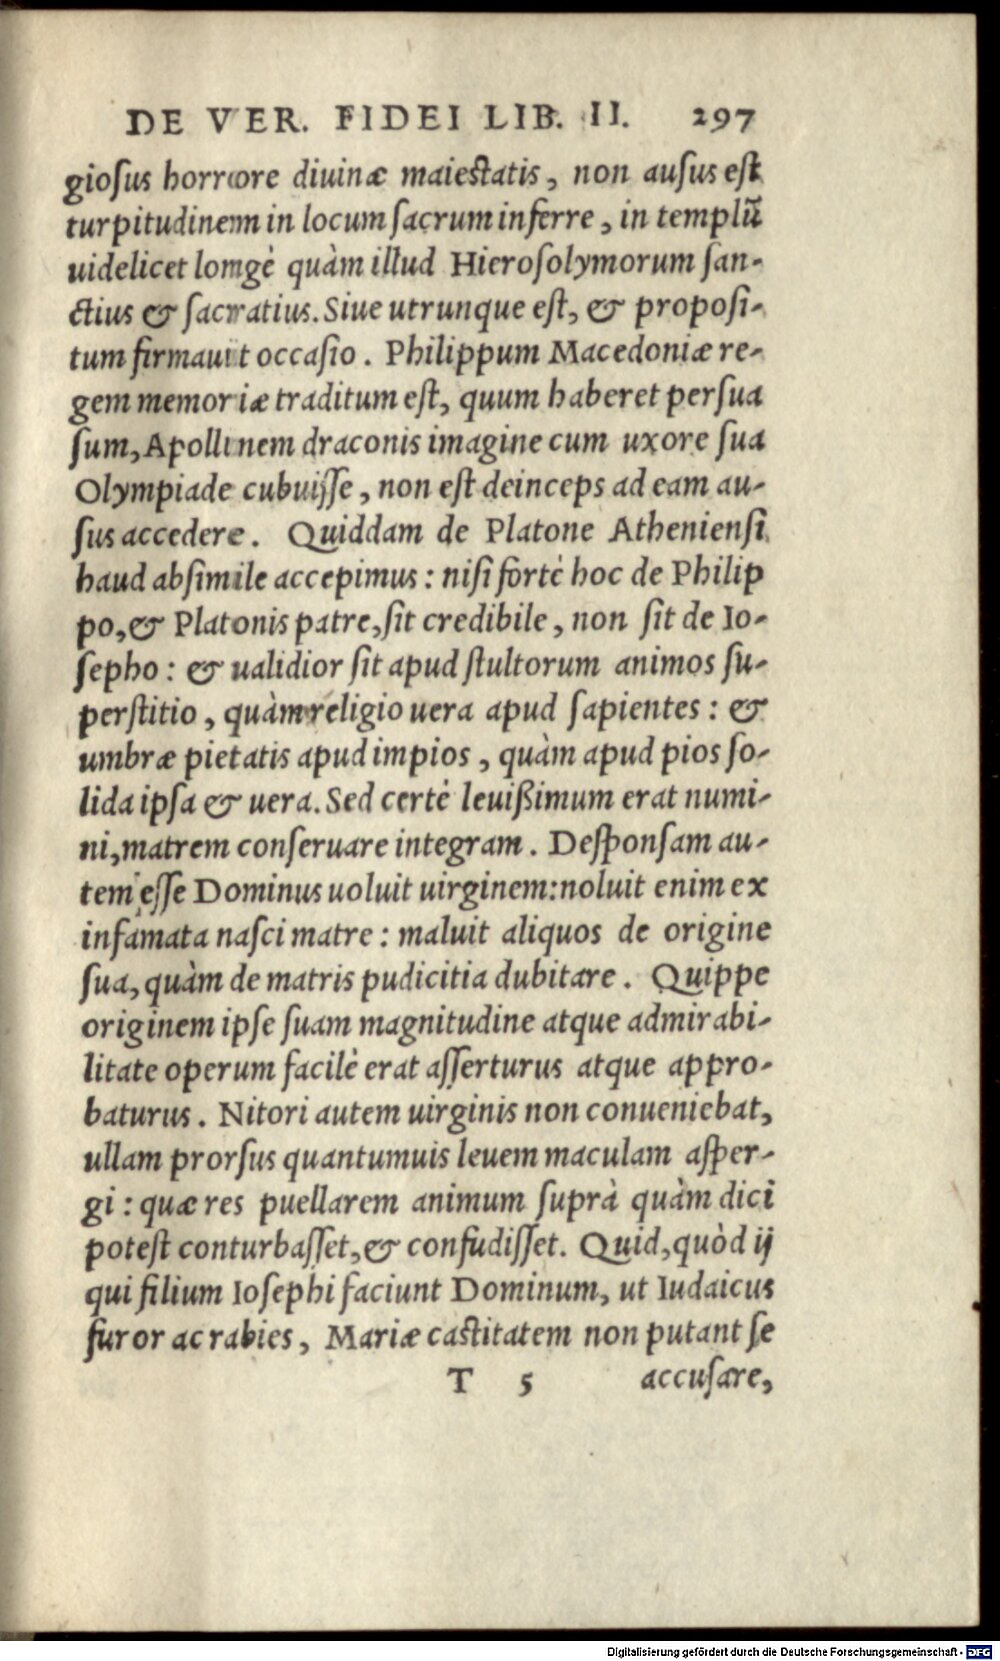 DE VER. FIDEI LIB. II. 297
gioſus horrore diuinæ maieſtatis, non auſus eſt
turpitudinem in locum ſacrum inferre, in templũ
uidelicet longè quàm illud Hieroſolymorum ſan-
ctius & ſacratius. Siue utrunque eſt, & propoſi-
tum firmauit occaſio. Philippum Macedoniæ re-
gem memoriæ traditum eſt, quum haberet perſua
ſum, Apollinem draconis imagine cum uxore ſua
Olympiade cubuiſſe, non eſt deinceps ad eam au-
ſus accedere. Quiddam de Platone Athenienſi
haud abſimile accepimus: niſi fortè hoc de Philip
po, & Platonis patre, ſit credibile, non ſit de Io-
ſepho: & ualidior ſit apud ſtultorum animos ſu-
perſtitio, quàm religio uera apud ſapientes: &
umbræ pietatis apud impios, quàm apud pios ſo-
lida ipſa & uera. Sed certè leuißimum erat numi-
ni, matrem conſeruare integram. Deſponſam au-
tem eſſe Dominus uoluit uirginem: noluit enim ex
infamata naſci matre: maluit aliquos de origine
ſua, quàm de matris pudicitia dubitare. Quippe
originem ipſe ſuam magnitudine atque admirabi-
litate operum facilè erat aſſerturus atque appro-
baturus. Nitori autem uirginis non conueniebat,
ullam prorſus quantumuis leuem maculam aſper-
gi: quæ res puellarem animum ſuprà quàm dici
poteſt conturbaſſet, & confudiſſet. Quid, quòd ij
qui filium Ioſephi faciunt Dominum, ut Iudaicus
furor ac rabies, Mariæ caſtitatem non putant ſe
T 5 accuſare,
Digitalisierung gefördert durch die Deutsche Forschungsgemeinschaft - DFG